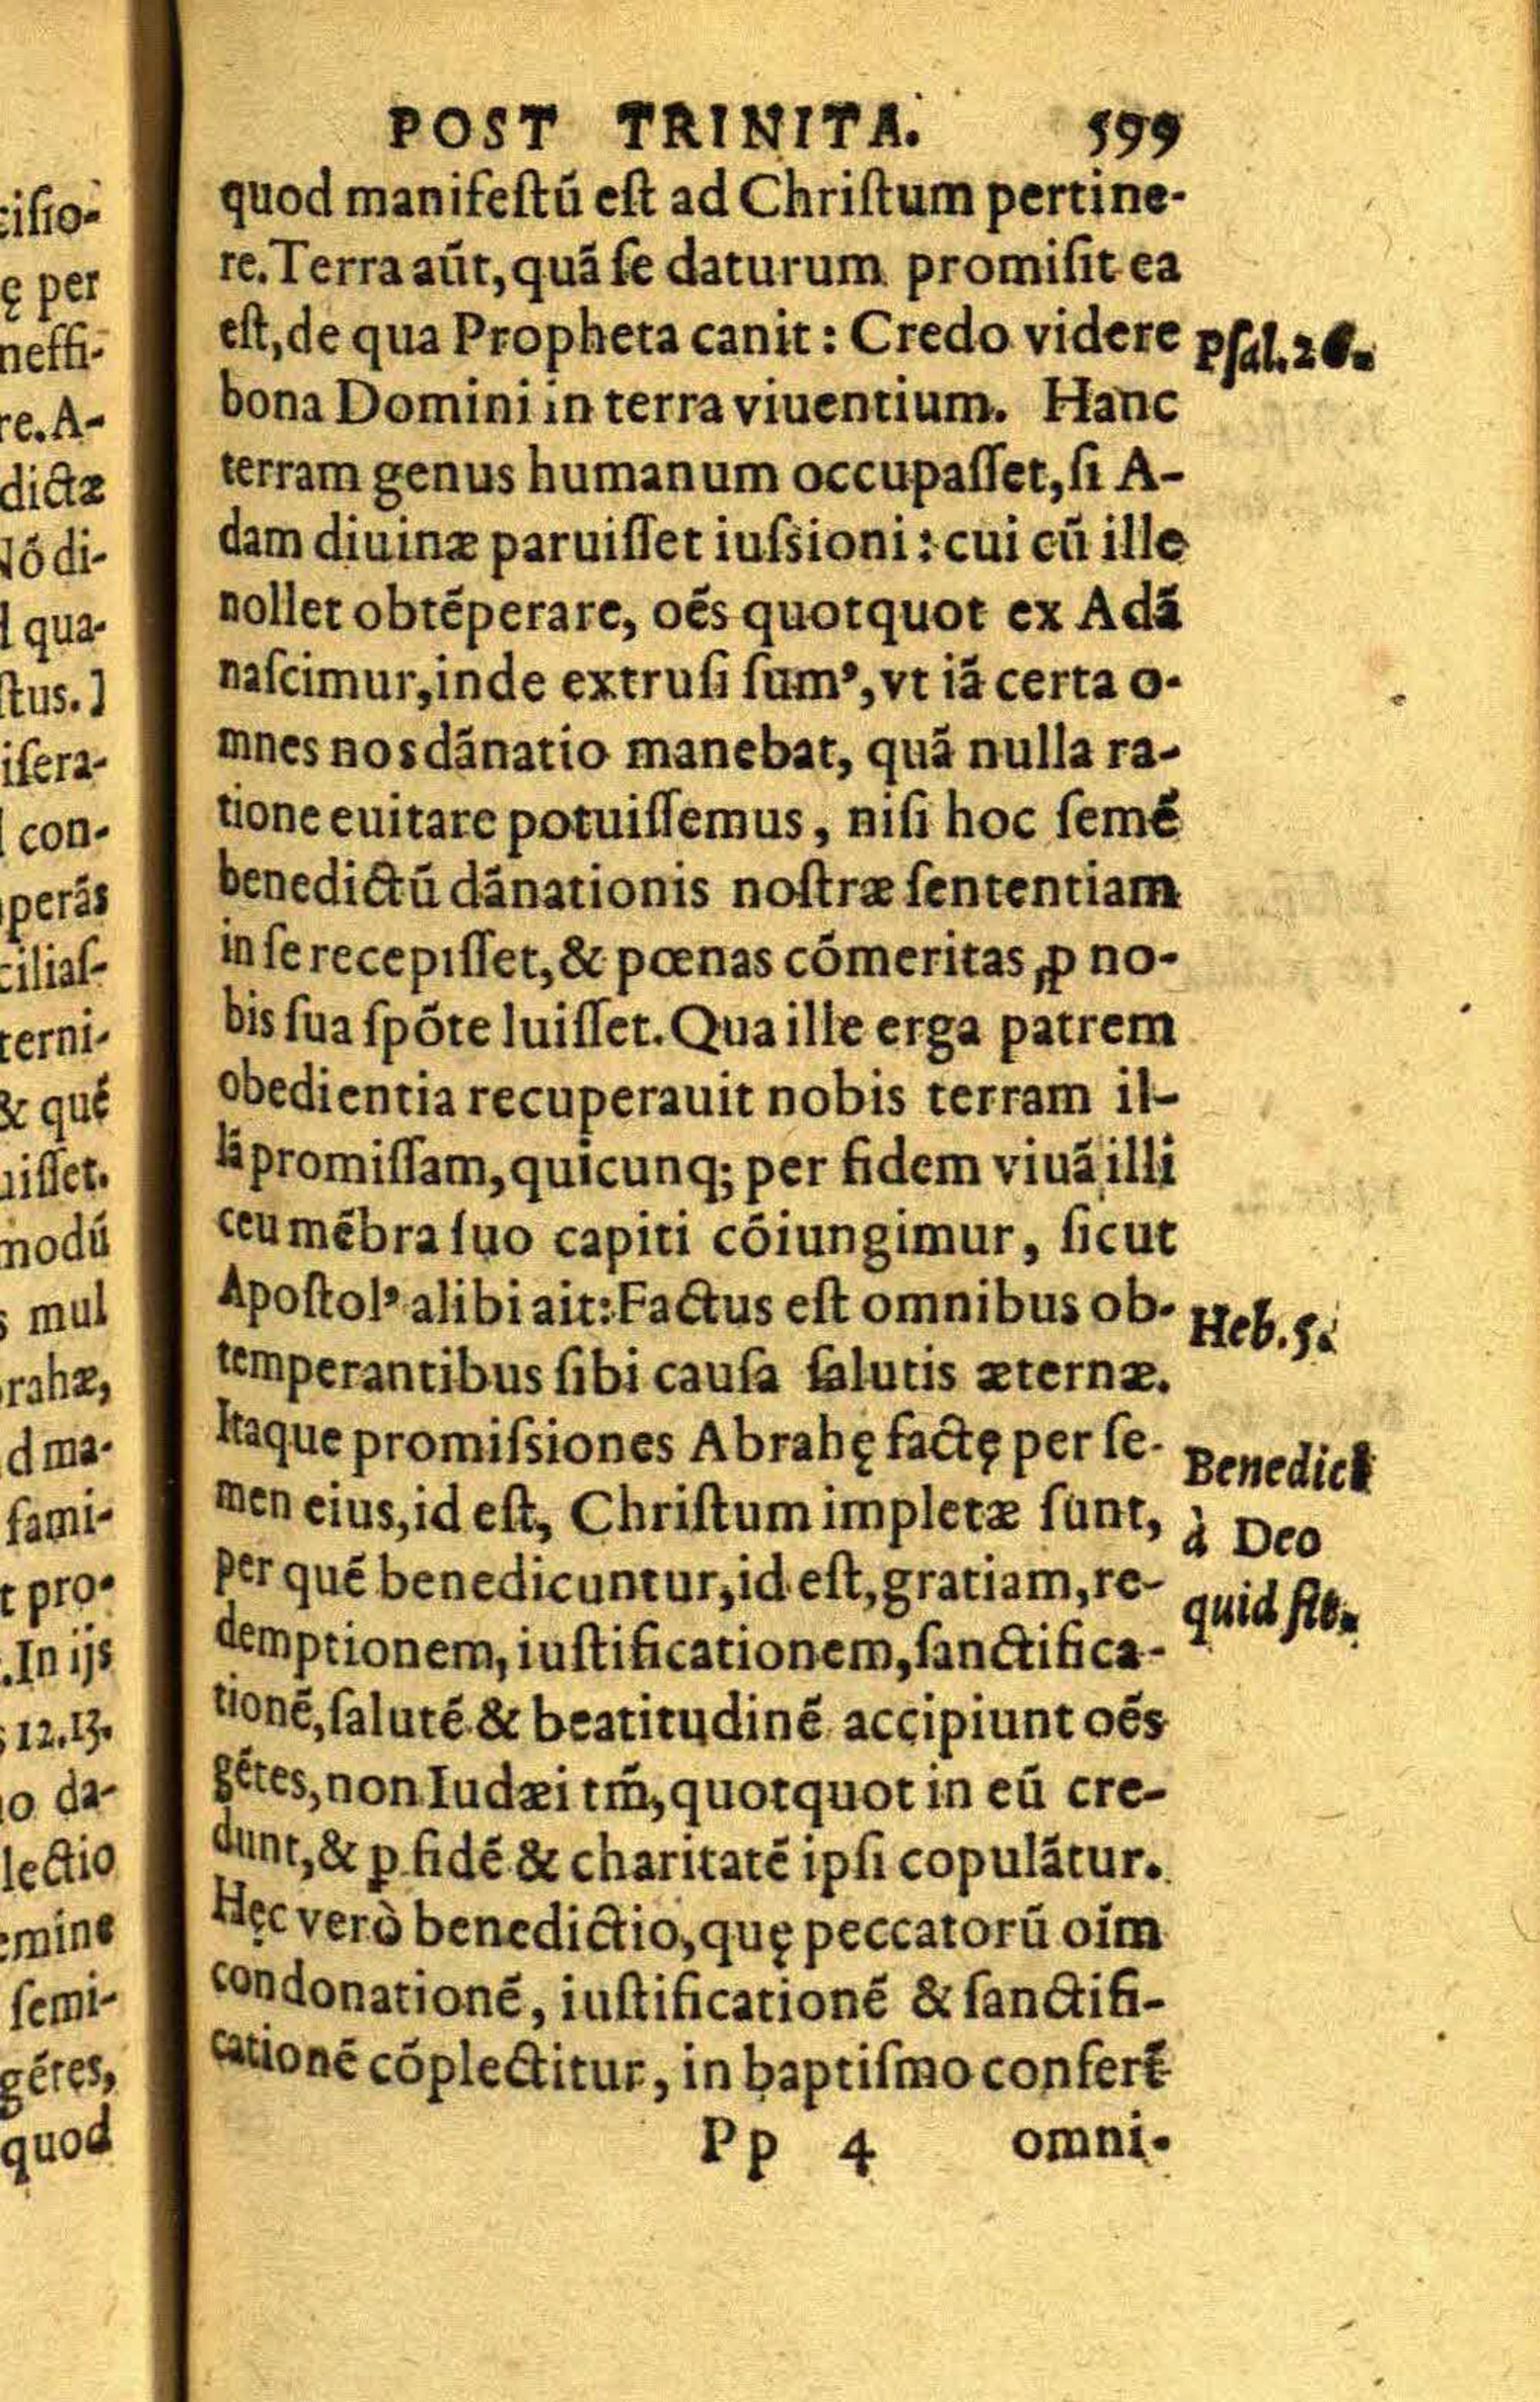 POST TRINITA. 599
quod manifeſtũ eſt ad Chriſtum pertine-
re. Terra aũt, quã ſe daturum promiſit ea
eſt, de qua Propheta canit: Credo videre
Pſal. 26.
bona Domini in terra viuentium. Hanc
terram genus humanum occupaſſet, ſi A-
dam diuinæ paruiſſet iuſsioni: cui cũ ille
nollet obtẽperare, oẽs quotquot ex Adã
naſcimur, inde extruſi ſumꝰ, vt iã certa o-
mnes nos dãnatio manebat, quã nulla ra-
tione euitare potuiſſemus, niſi hoc ſemẽ
benedictũ dãnationis noſtræ ſententiam
in ſe recepiſſet, & pœnas cõmeritas ꝓ no-
bis ſua ſpõte luiſſet. Qua ille erga patrem
obedientia recuperauit nobis terram il-
lã promiſſam, quicunq; per fidem viuã illi
ceu mẽbra ſuo capiti cõiungimur, ſicut
Apoſtolꝰ alibi ait: Factus eſt omnibus ob-
Heb. 5.
temperantibus ſibi cauſa ſalutis æternæ.
Itaque promiſsiones Abrahę factę per ſe-
Benedici
men eius, id eſt, Chriſtum impletæ ſunt,
à Deo
per quẽ benedicuntur, id eſt, gratiam, re-
quid ſit.
demptionem, iuſtificationem, ſanctifica-
tionẽ, ſalutẽ & beatitudinẽ accipiunt oẽs
gẽtes, non Iudæi tm̃, quotquot in eũ cre-
dunt, & ꝑ fidẽ & charitatẽ ipſi copulãtur.
Hęc verò benedictio, quę peccatorũ oĩm
condonationẽ, iuſtificationẽ & ſanctifi-
cationẽ cõplectitur, in baptiſmo confert̃
Pp 4 omni-